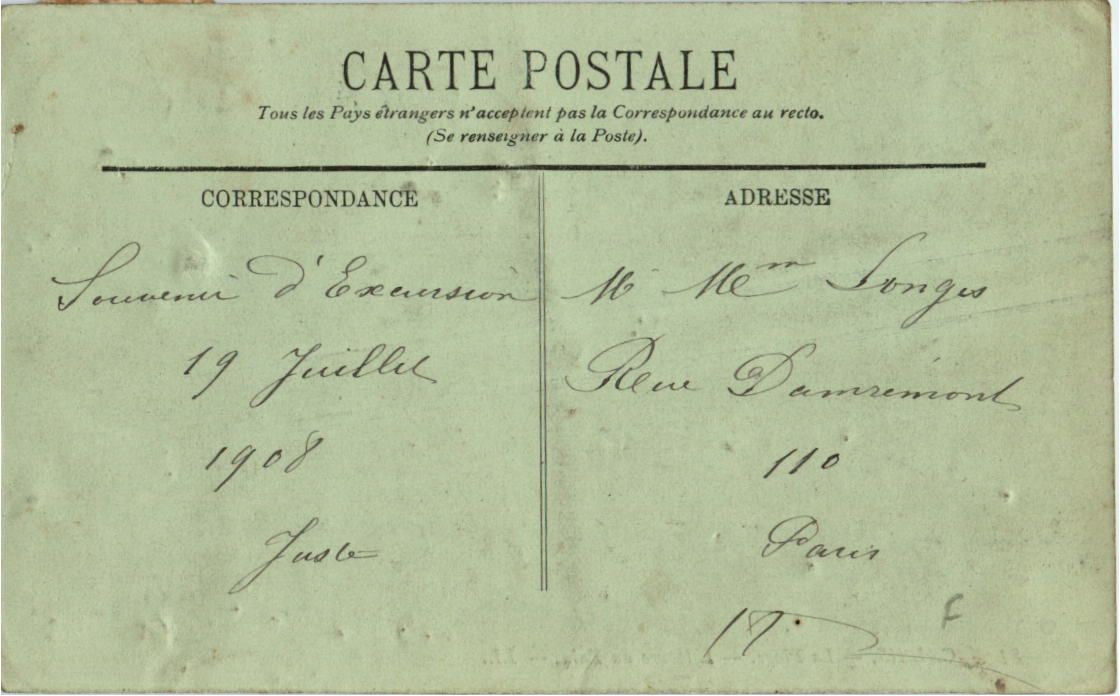 CARTE POSTALE
Tous les Pays étrangers n'acceptent pas la Correspondance au recto.
(Se renseigner à la Poste).
CORRESPONDANCE
Souvenir d'Excursion
19 Juillet
1908
Juste
ADRESSE
M Mem Songis
Rue Damremont
110
Paris
F